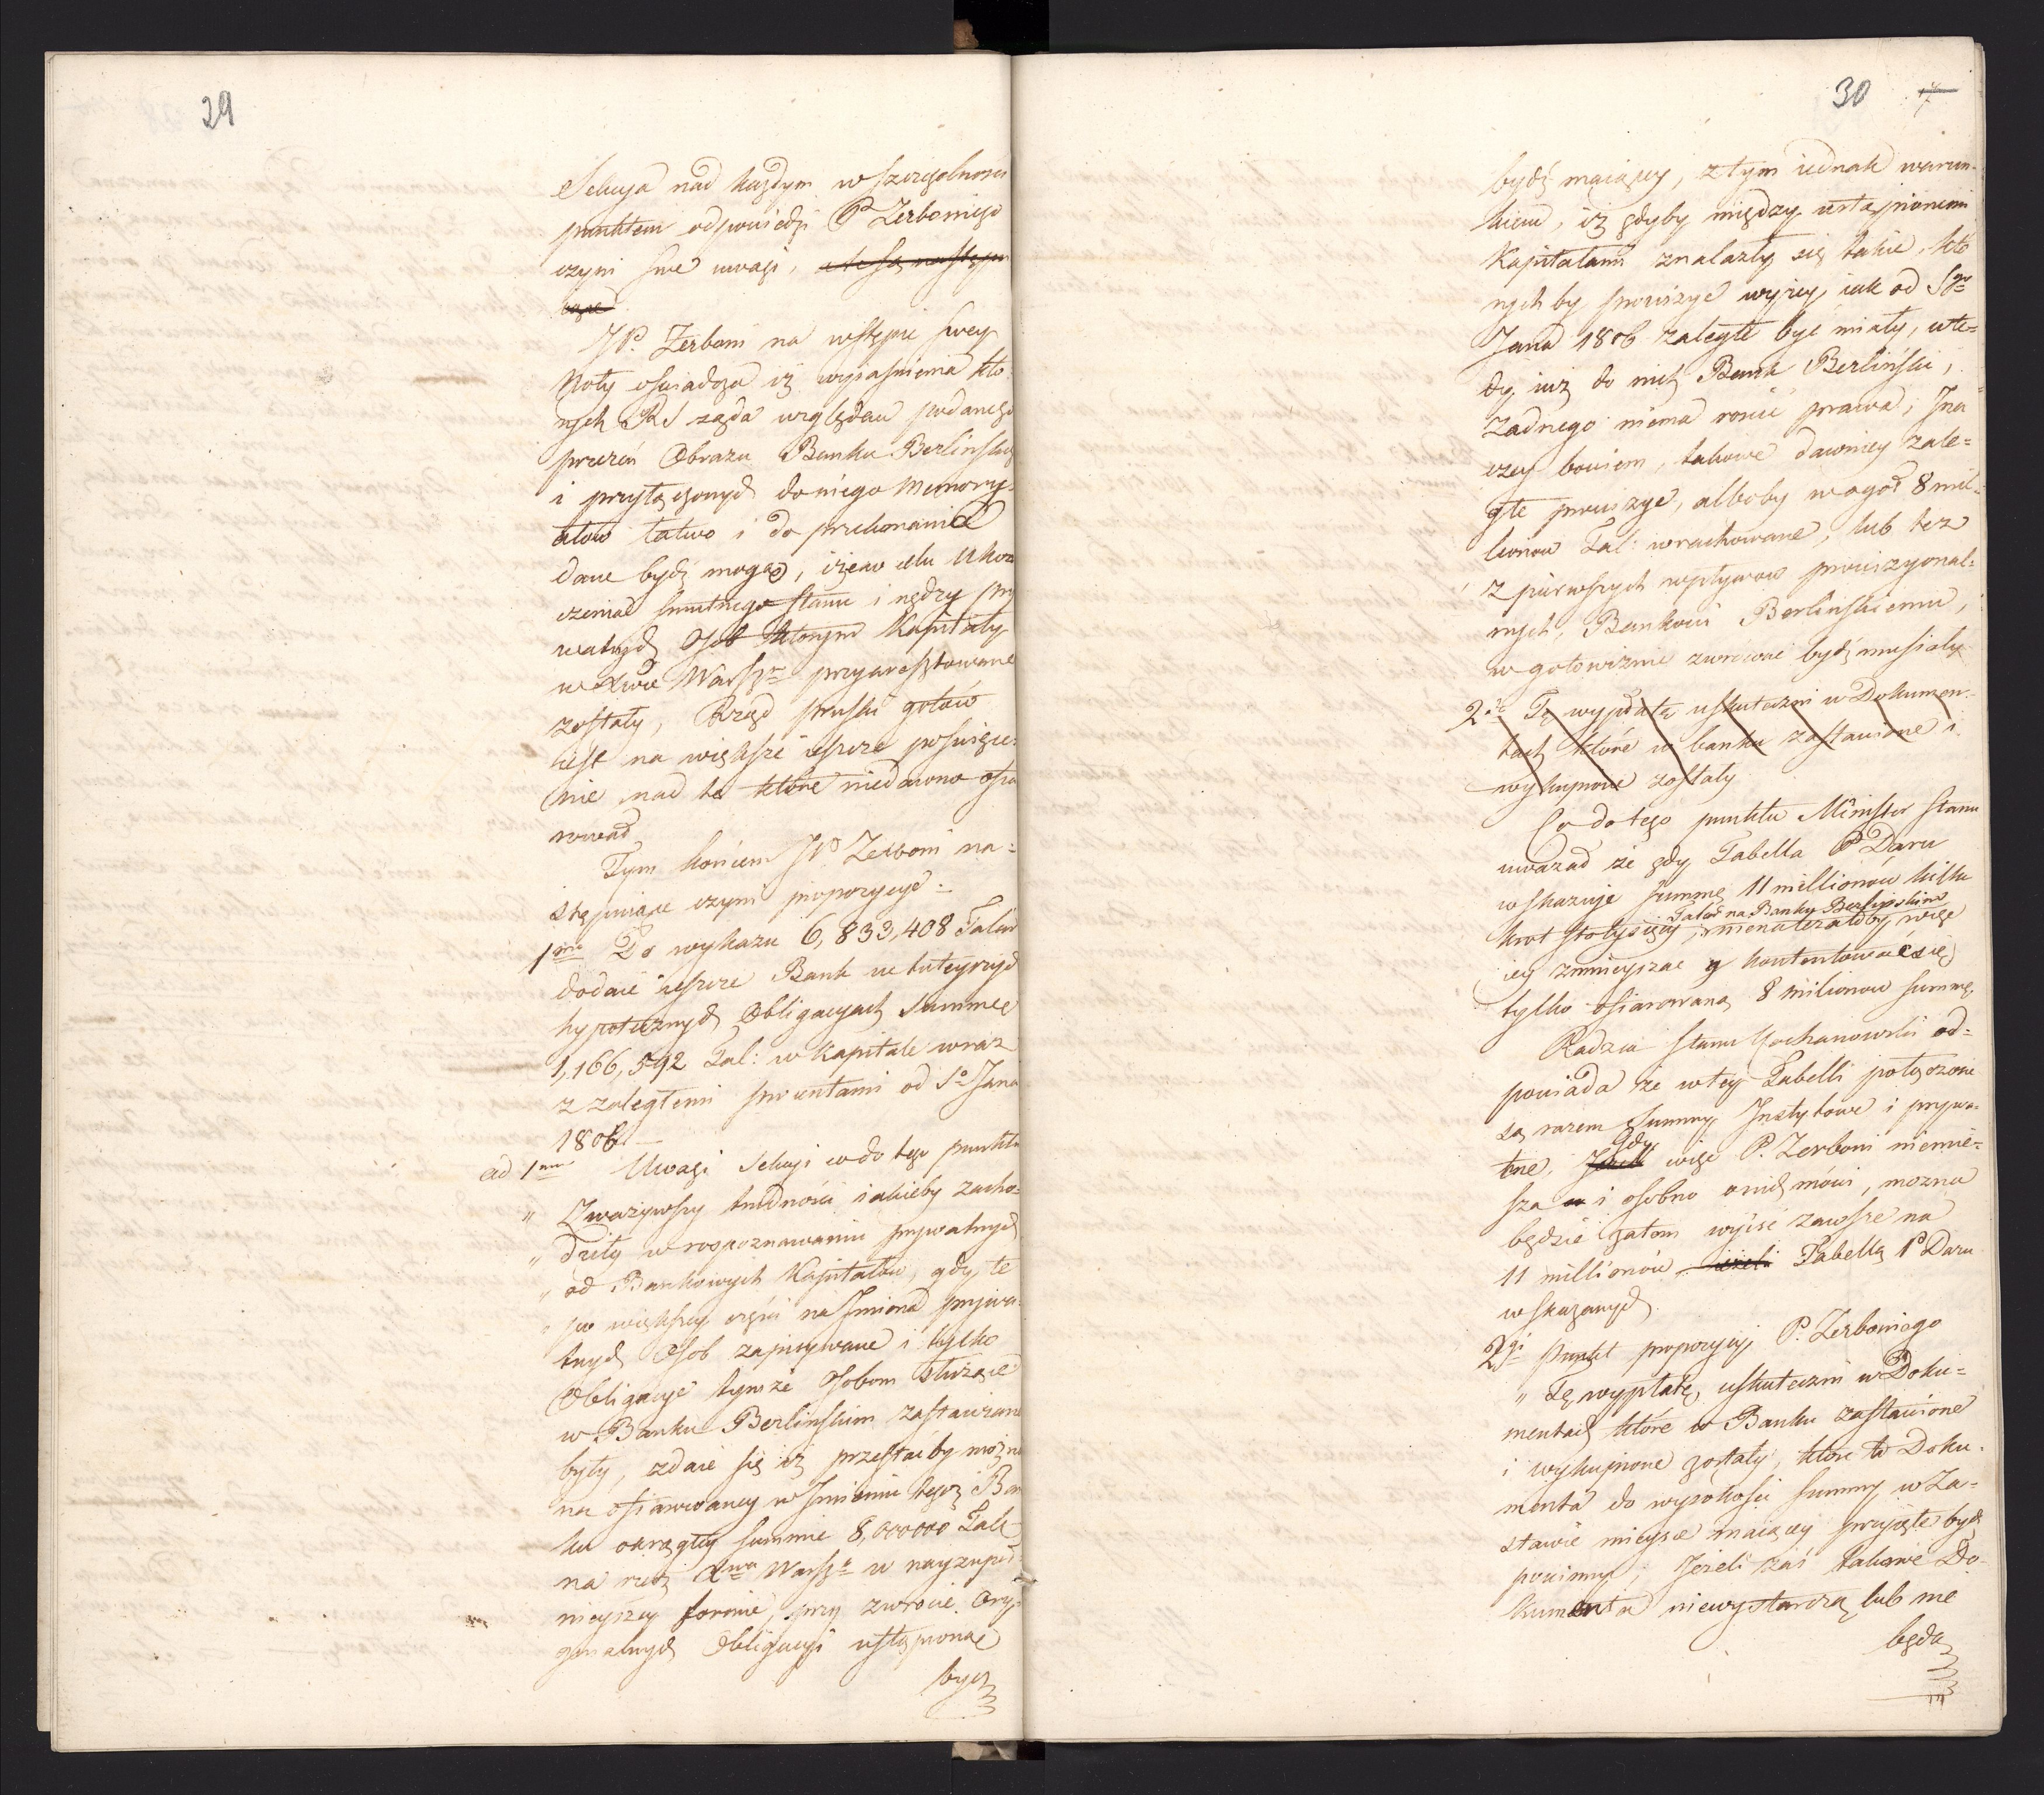 29
Sekcya nad każdym w szczegolnosci
punktem odpowiedzi P. Zerboniego
czyni swe uwagi, te są następu
iące
JP. Zerboni na wstępie swey
Noty oswiadcza iż wyiasnienia kto
rych RS ząda względem podanego
przezeń Obrazu Banku Berlińskiego
i przyłączonych do niego memory-
ałow łatwo i do przekonania
dane bydź mogą, iż w celu ukoń
czenia smutnego stanu i nędzy pry
watnych Osob ktorym Kapitały
w Xwie Warszm przyaresztowane
zostały, Rząd pruski gotow
iest na większe ieszcze poswięce-
nie nad te które niedawno ofia
rował
Tym końcem JP. Zerboni na-
stępuiące czyni propozycye:
1mo Do wykazu 6,833,408 Talar
dodaie ieszcze Bank w tuteyszych
hypotecznych Obligacyach Summę
1,166,592 Tal: w Kapitale wraz
z zaległemi procentami od So Jana
1806.
ad 1mum Uwagi Sekcyi co do tego punktu
" Zważywszy trudności iakieby zacho-
" dziły w rospoznawaniu prywatnych
" od Bankowych Kapitałow, gdy te
" po większey części na Imiona prywa-
tnych Osob zapisywane i tylko
Obligacye tymże Osobom służące
w Banku Berlinskim zastawione
były, zdaie się iż przestać by można
na ofiarowaney w Imieniu tegoż Ban
ku okrągłey summie 8,000000 Tal:
na rzecz Xwa Warszo w nayzupeł
nieyszey formie, przy zwrocie ory-
ginalnych Obligacyi ustąpioną
bydz
30 7
bydź maiącey, z tym iednak warun-
kiem, iż gdyby między ustąpionemi
Kapitałami znalazły się takie, któ
rych by prowizye wyżey iak od Sgo
Jana 1806 zaległe być miały, wte-
dy iuż do nich Bank Berliński,
żadnego niema rościć prawa; Ina
czey bowiem, takowe dawniey zale-
głe prowizye, alboby w ogoł 8 mil-
lionow Tal: wrachowane, lub też
z pierwszych wpływow prowizyonal-
nych, Bankowi Berlinskiemu,
w gotowiznie zwrócone bydź musiały
2do Tę wypłatę uskuteczni w Dokumen-
tach które w banku zastawione i
wykupione zostały
Co do tego punktu Minister stanu
uważał że gdy Tabella P Daru
wskazuje summę 11 millionow kilku
kroć stotysięcy Talar na Banku Berlinskim, nienależałoby więc
iey zmnieyszać y kontentować się
tylko ofiarowaną 8 milionow summę.
Radzca stanu Kochanowski od-
powiada że w tey Tabelli połączone
są razem summy Instytowe i prywa-
tne, Jeżeli Gdy więc P. Zerboni niemie-
sza i osobno o nich mówi, można
będzie zatem wyiść zawsze na
11 millionów ieżeli Tabellą P Daru
wskazanych.
2gi Punkt propozycyi P. Zerboniego
" Tę wypłatę, uskuteczni w Doku-
mentach które w Banku zastawione
i wykupione zostały, które to Doku-
menta do wysokości summy w Za-
stawie mieysce maiącey przyięte bydź
powinny. Jeżeli zaś takowe Do
kumenta niewystarczą lub nie
będą